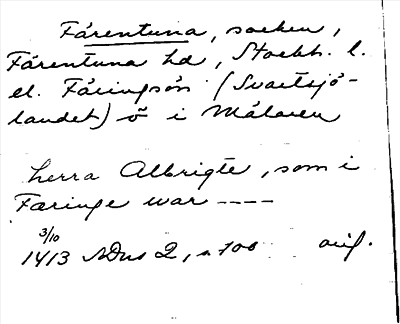 Färentuna, socken,
Färentuna hd, Stockh. l.
el. Färingsön (Svartsjö-
landet) ö i Mälaren
herra Albrigte, som i
Færinge war ----
3/10
1413 SDns 2, s. 700 orig.